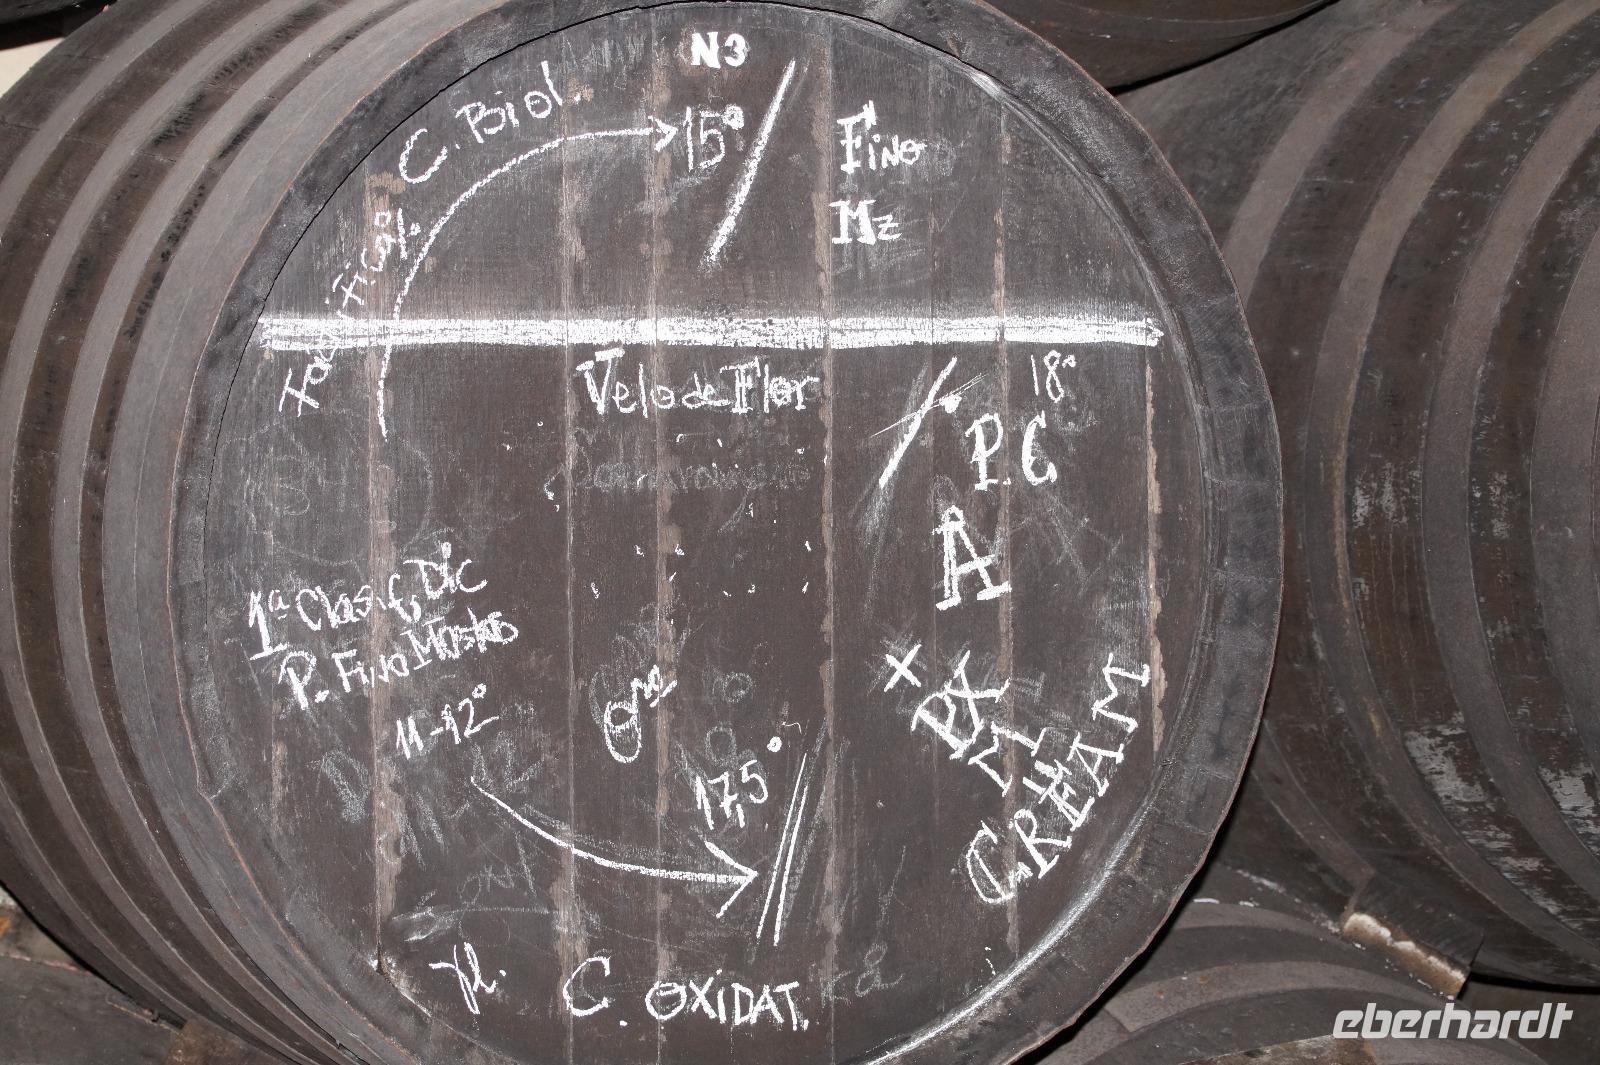 N3
C. Biol.
15°
Fino
Mz
Velo de Flor
18°
P.C
A
1ª Clasif, Dic
P. Fino Mostos
11-12°
17,5°
+ PX
CREAM
C. OXIDAT.
eberhardt